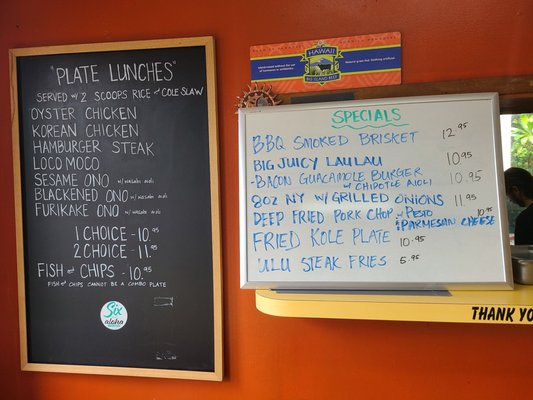 "PLATE LUNCHES"
SERVED W/ 2 SCOOPS RICE & COLE SLAW
OYSTER CHICKEN
KOREAN CHICKEN
HAMBURGER STEAK
LOCO MOCO
SESAME ONO W/ WASABI AIOLI
BLACKENED ONO W/ WASABI AIOLI
FURIKAKE ONO W/ WASABI AIOLI
1 CHOICE - 10.95
2 CHOICE - 11.95
FISH & CHIPS - 10.95
FISH & CHIPS CANNOT BE A COMBO PLATE
Six
aloha
HAWAII
BIG ISLAND BEEF
SPECIALS
BBQ SMOKED BRISKET 12.95
BIG JUICY LAULAU 10.95
-BACON GUACAMOLE BURGER 10.95
W/ CHIPOTLE AIOLI
8OZ NY W/ GRILLED ONIONS 11.95
DEEP FRIED PORK CHOP W/ PESTO 10.95
& PARMESAN CHEESE
FRIED KOLE PLATE 10.95
ULU STEAK FRIES 5.95
THANK YO